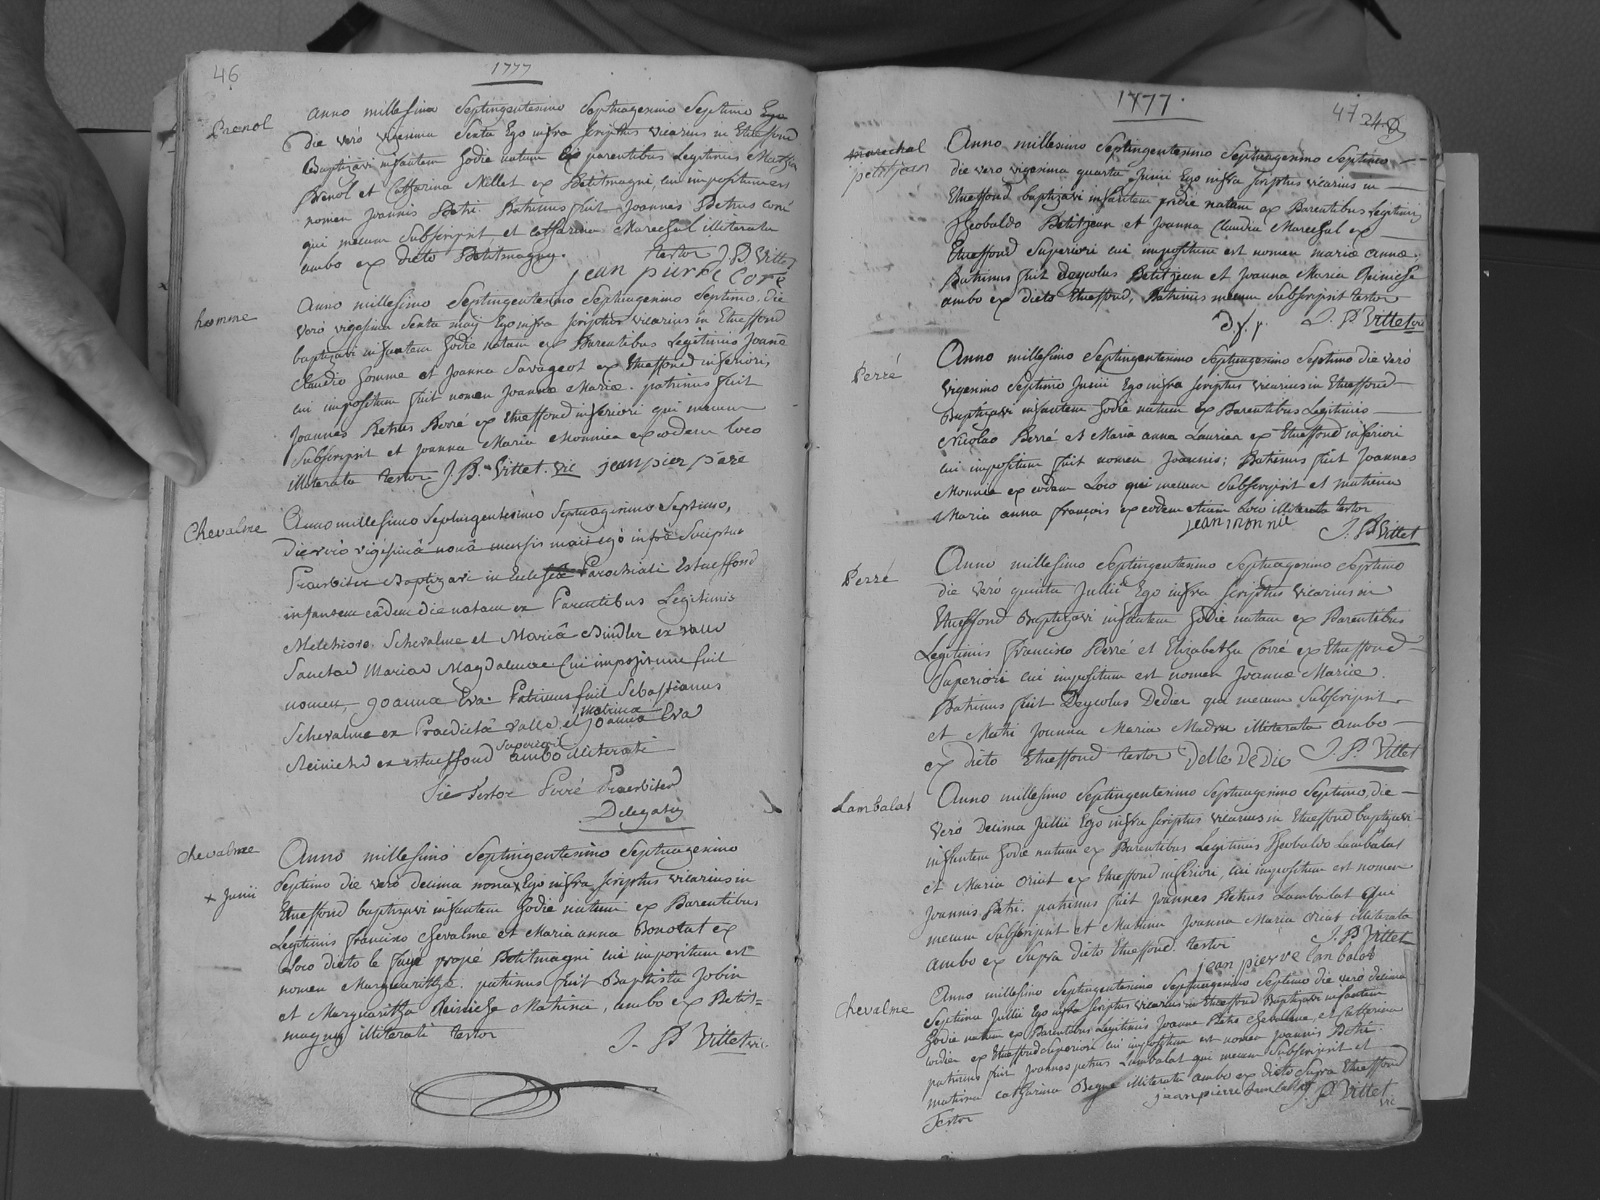 46
1777
Prenol
Anno millesimo Septingentesimo Septuagesimo Septimo Ego
die verò vigesima Sexta Ego infra scriptus vicarius in Etueffond
Baptizavi infantem hodie natum Ex parentibus Legitimis
Prenol et Catharina Millet ex Petitmagni, cui impositum est
nomen Joannis Petri. Patrinus fuit Joannes Petrus coré
qui mecum Subscripsit et catharina Marechal illiterata
ambo ex dicto Petitmagny. testor J. B. Vittet
jean pierre Coré
homme
Anno millesimo Septingentesimo Septuagesimo Septimo, die
verò vigesima Sexta maij Ego infra scriptus vicarius in Etueffond
baptizavi infantem hodie natam ex Parentibus Legitimis Joanne
Claudio homme et Joanna Savageot ex Etueffond inferiori
cui impositum fuit nomen Joannæ Mariæ. patrinus fuit
Joannes Petrus Perré ex Etueffond inferiori qui mecum
Subscripsit et Joanna Maria Monnica ex eodem loco
illiterata testor J. B. Vittet. vic jean pier père
Chevalme
Anno millesimo Septingentesimo Septuagesimo Septimo,
die verò vigesimâ nonâ mensis maii ego infrà Scriptus
Præsbiter Baptizavi in Eclesia Parochiali Estueffond
infantem eâdem die natam ex Parentibus Legitimis
Melchioro Schevalme et Mariâ Bindler ex valle
Sanctæ Mariæ Magdalenæ Cui impositum fuit
nomen Joanna Eva. Patrinus fuit Sebastianus
Schevalme ex Prædictâ valle et matrina Joanna Eva
Reinich ex estueffond superiori ambo illiterati
Sic testor Perré Præsbiter
Delegatus
chevalme
+ Junii
Anno millesimo Septingentesimo Septuagesimo
Septimo die verò decima nona + Ego infra scriptus vicarius in
Etueffond baptizavi infantem hodie natum ex Parentibus
Legitimis francisco chevalme et Maria anna Bonotat ex
Loco dicto le faye propè Petitmagni cui impositum est
nomen Margaritha. patrinus fuit Baptista Jobin
et Margaritha Reiniche Matrina, ambo ex Petit=
magny illiterati testor
J. B Vittet vic.
1777.
47 24
marechal
petitjean
Anno millesimo Septingentesimo Septuagesimo Septimo
die verò vigesima quarta Junii Ego infra scriptus vicarius in
Etueffond baptizavi infantem pridie natam ex Parentibus Legitimis
Theobaldo Petitjean et Joanna Claudia Marechal ex
Etueffond Superiori cui impositum est nomen mariæ annæ.
Patrinus fuit Deycolus Petitjean et Joanna Maria Reiniche
ambo ex dicto Etueffond, Patrinus mecum Subscripsit testor
J. B Vittet vic
Perré
Anno millesimo Septingentesimo Septuagesimo Septimo die verò
vigesimo Septimo Junii Ego infra scriptus vicarius in Etueffond
Baptizavi infantem hodie natum ex Parentibus Legitimis
Nicolao Perré et Maria anna Laurier ex Etueffond inferiori
cui impositum fuit nomen Joannis; Patrinus fuit Joannes
Monnié ex eodem Loco qui mecum Subscripsit et matrina
Maria anna françois ex eodem etiam loco illiterata testor
jean monnie
J. B Vittet
Perré
Anno millesimo Septingentesimo Septuagesimo Septimo
die verò quinta Jullii Ego infra scriptus vicarius in
Etueffond Baptizavi infantem hodie natam ex Parentibus
Legitimis Francisco Perré et Elizabetha Corré ex Etueffond
Superiori cui impositum est nomen Joannæ Mariæ.
Patrinus fuit Deycolus Dedier qui mecum Subscripsit
et Joanna Maria illiterata ambo
ex dicto Etueffond testor Delle Dedie J. B. Vittet
Lambalat
Anno millesimo Septingentesimo Septuagesimo Septimo, die
verò Decima Jullii Ego infra scriptus vicarius in Etueffond baptizavi
infantem hodie natum ex Parentibus Legitimis Theobaldo Lambalat
et Maria oriat ex Etueffond inferiori, cui impositum est nomen
Joannis Petri. patrinus fuit Joannes Petrus Lambalat qui
mecum Subscripsit et Matrina Joanna Maria oriat illiterata
ambo ex Supra dicto Etueffond testor J. B Vittet
jean pierre lanbalat
Chevalme
Anno millesimo Septingentesimo Septuagesimo Septimo die verò decima
Septima Jullii Ego infra scriptus vicarius in Etueffond Baptizavi infantem
hodie natum ex Parentibus Legitimis Joanne Petro chevalme et Catharina
ex Etueffond Superiori cui impositum est nomen Joannis Petri.
patrinus fuit Joannes petrus Lambalat qui mecum Subscripsit et
matrina catharina illiterata ambo ex dicto supra Etueffond
jeanpierre lambalat J. B Vittet
vic
testor